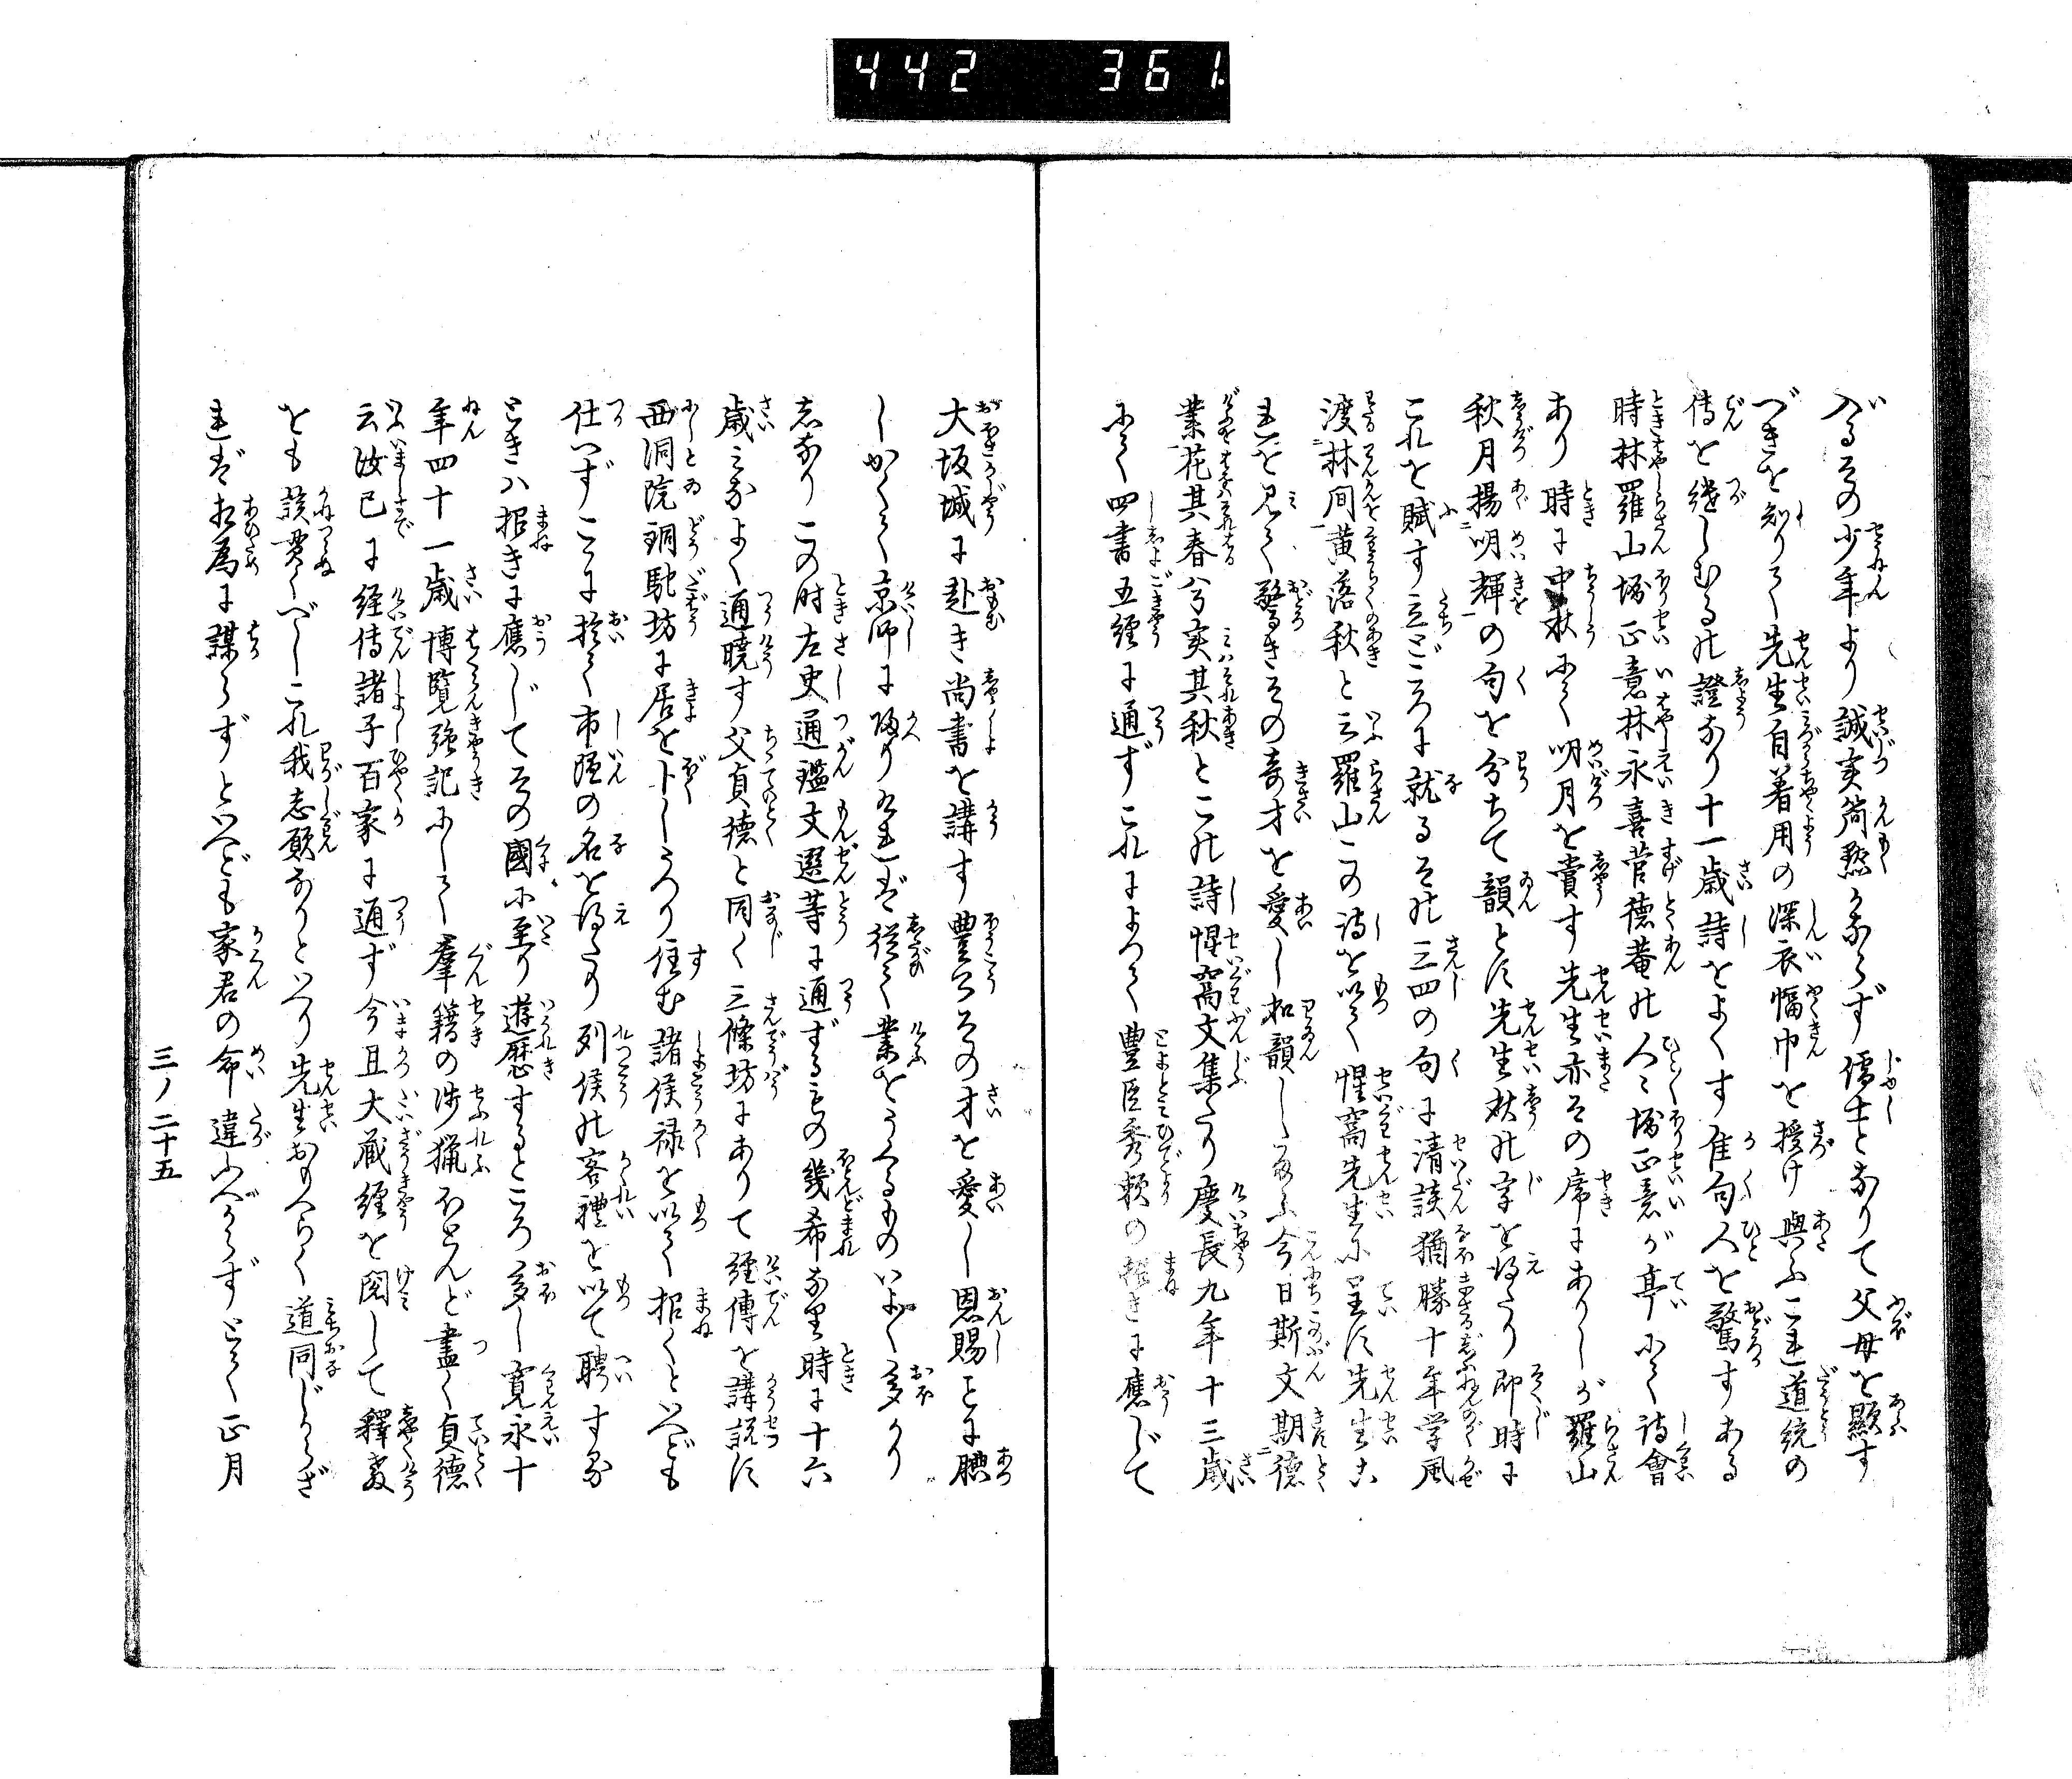 442 361
入るその少年より誠実簡黙かならず儒士となりて父母を顕す
べきを知りて先生自着用の深衣幅巾を授け與ふこれ道統の
傳を継しむるの證なり十一歳詩をよくす佳句人を驚すある
時林羅山堀正意林永喜菅徳菴の人々堀正意が亭にて詩會
あり時に中秋にて明月を賞す先生亦その席にありしが羅山
秋月揚明輝の句を分ちて韻とす先生秋の字を得たり即時に
これを賦す立どころに就るその三四の句に清談猶勝十年学風
渡林間黄落秋と云羅山この詩を以て惺窩先生に呈す先生こ
れを見て驚きその奇才を愛し和韻したまふ今日斯文期徳
業花其春兮実其秋とこの詩惺窩文集にあり慶長九年十三歳
にて四書五経に通ずこれによつて豊臣秀頼の招きに應じて
大坂城に赴き尚書を講す豊公その才を愛し恩賜ことに腆
しかくて京師に帰りければ従て業をうくるものいよ〱多かり
しなりこの時左史通鑑文選等に通ずるもの幾希なり時に十六
歳ミなよく通暁す父貞徳と同く三條坊にありて経傳を講説す
西洞院銅駝坊に居を卜しうつり住む諸侯禄を以て招くといへども
仕へずこゝに於て市隠の名を得たり列侯の客禮を以て聘する
ときハ招きに應じてその國に至り遊歴するところ多し寛永十
年四十一歳博覧強記にして羣籍の渉猟ほとんど盡く貞徳
云汝已に経傳諸子百家に通ず今且大蔵経を閲して釋教
をも談貫くべしこれ我志願なりといへり先生おもへらく道同じからざ
れば相為に謀らずといへども家君の命違ふべからずとて正月
三ノ二十五